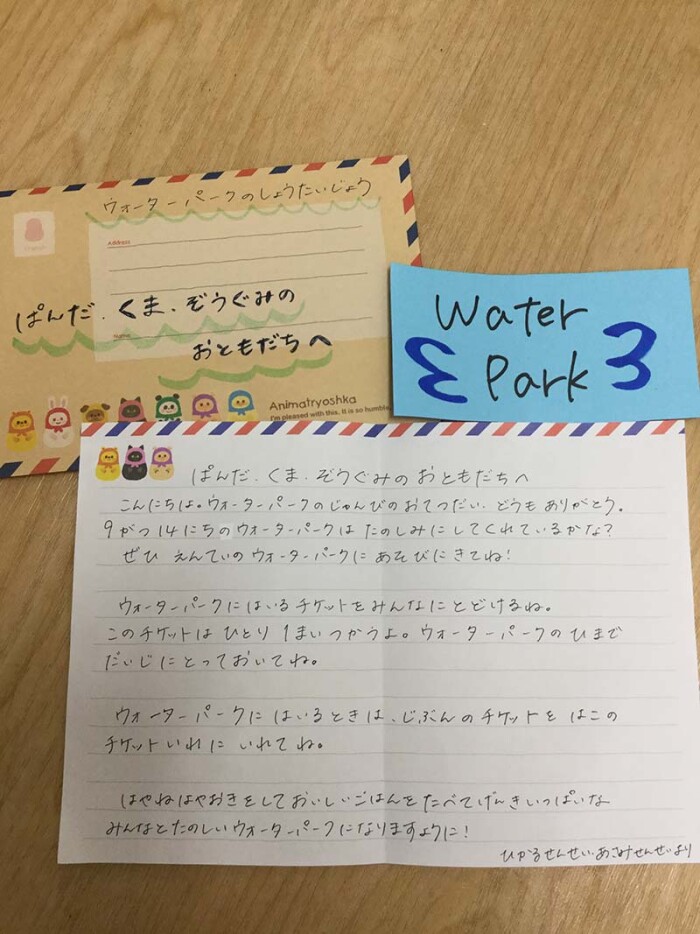 ウォーターパークのしょうたいじょう
Address
ぱんだ、くま、ぞうぐみの
Name
おともだちへ
Animatryoshka
I'm pleased with this. It is so humble
Water
Park
ぱんだ、くま、ぞうぐみのおともだちへ
こんにちは。ウォーターパークのじゅんびのおてつだい、どうもありがとう。
9がつ14にちのウォーターパークはたのしみにしてくれているかな?
ぜひ えんていのウォーターパークにあそびにきてね!
ウォーターパークにはいるチケットをみんなにとどけるね。
このチケットはひとり1まいつかうよ。ウォーターパークのひまで
だいじにとっておいてね。
ウォーターパークにはいるときは、じぶんのチケットをはこの
チケットいれにいれてね。
はやねはやおきをしておいしいごはんをたべてげんきいっぱいな
みんなとたのしいウォーターパークになりますように!
ひかるせんせい、あさみせんせいより